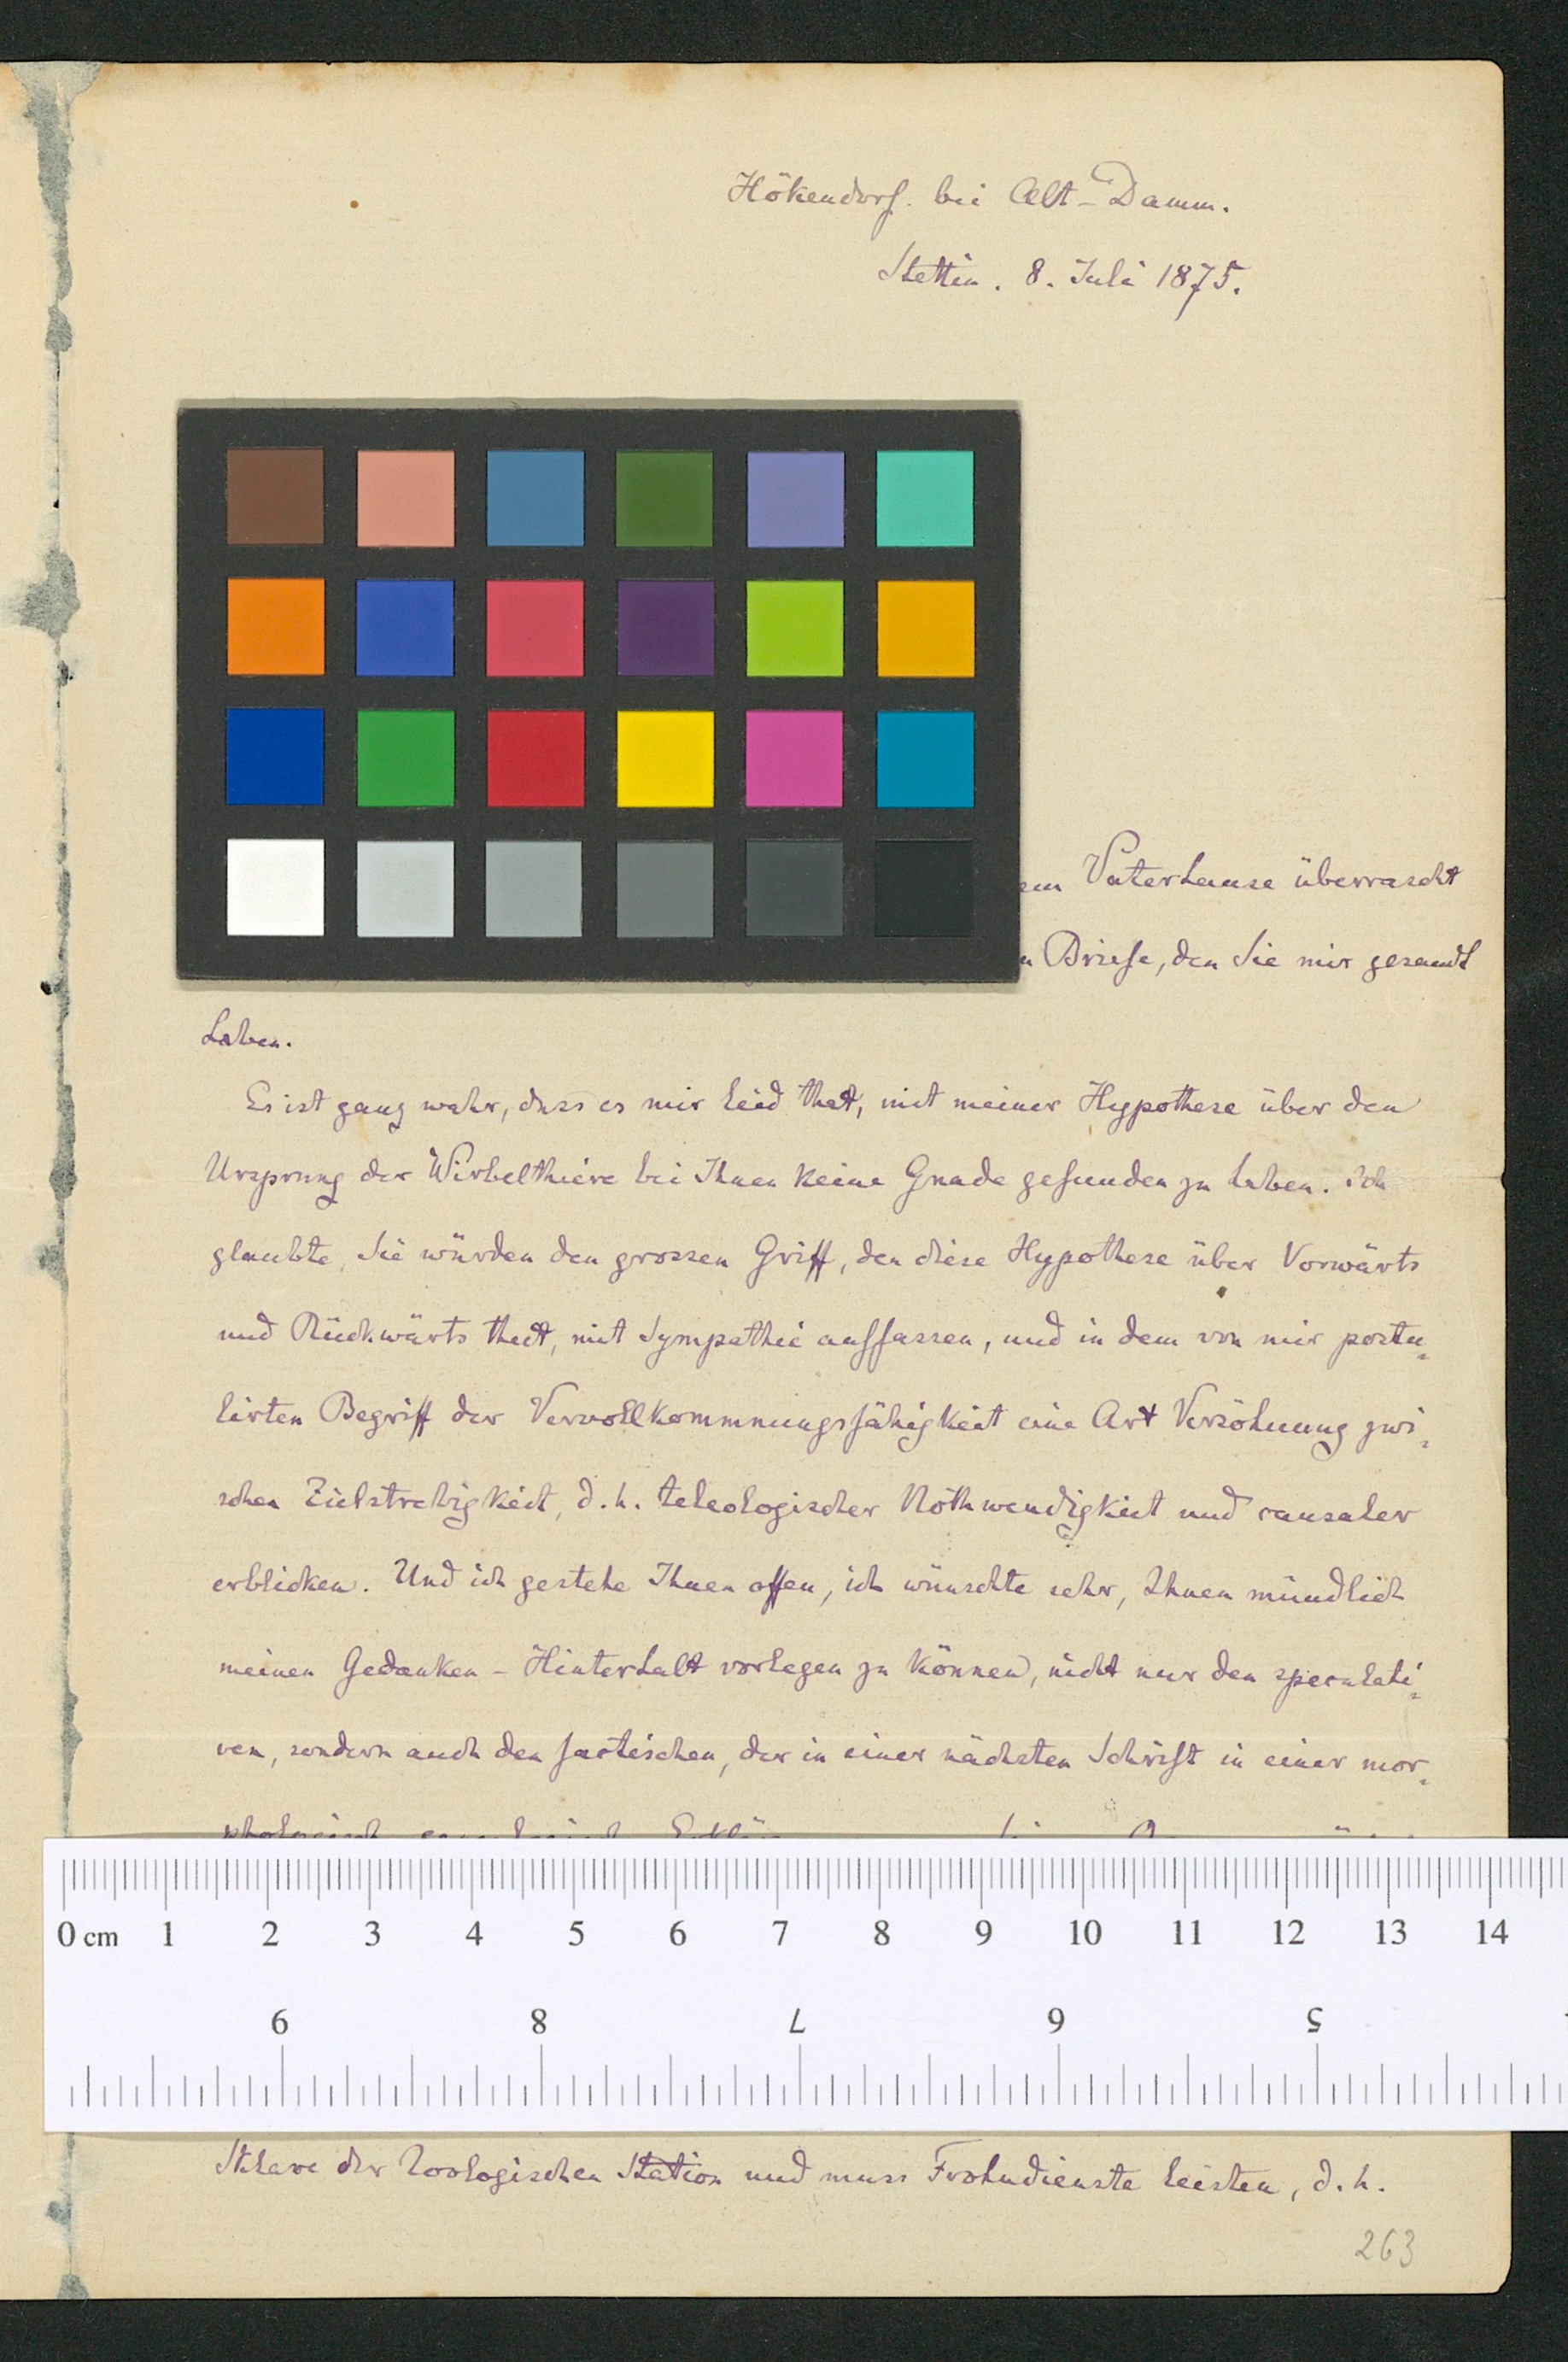 Hökendorf. bei Alt-Damm.
Stettin. 8. Juli 1875.
Vaterhause überrascht
Briefe, den Sie mir gesandt
haben.
Es ist ganz wahr, dass es mir leid that, mit meiner Hypothese über den
Ursprung der Wirbelthiere bei Ihnen keine Gnade gefunden zu haben. Ich
glaubte, Sie würden den grossen Griff, den diese Hypothese über Vorwärts
und Rückwärts thut, mit Sympathie auffassen, und in dem von mir postu-
lirten Begriff der Vervollkommnungsfähigkeit eine Art Versöhnung zwi-
schen Zielstrebigkeit, d.h. teleologischer Nothwendigkeit und causaler
erblicken. Und ich gestehe Ihnen offen, ich wünschte sehr, Ihnen mündlich
meinen Gedanken-Hinterhalt vorlegen zu können, nicht nur den speculati-
ven, sondern auch den factischen, der in einer nächsten Schrift in einer mor-
0 cm 1 2 3 4 5 6 7 8 9 10 11 12 13 14
9 8 7 6 5
Sklave der Zoologischen Station und muss Frohndienste leisten, d.h.
263